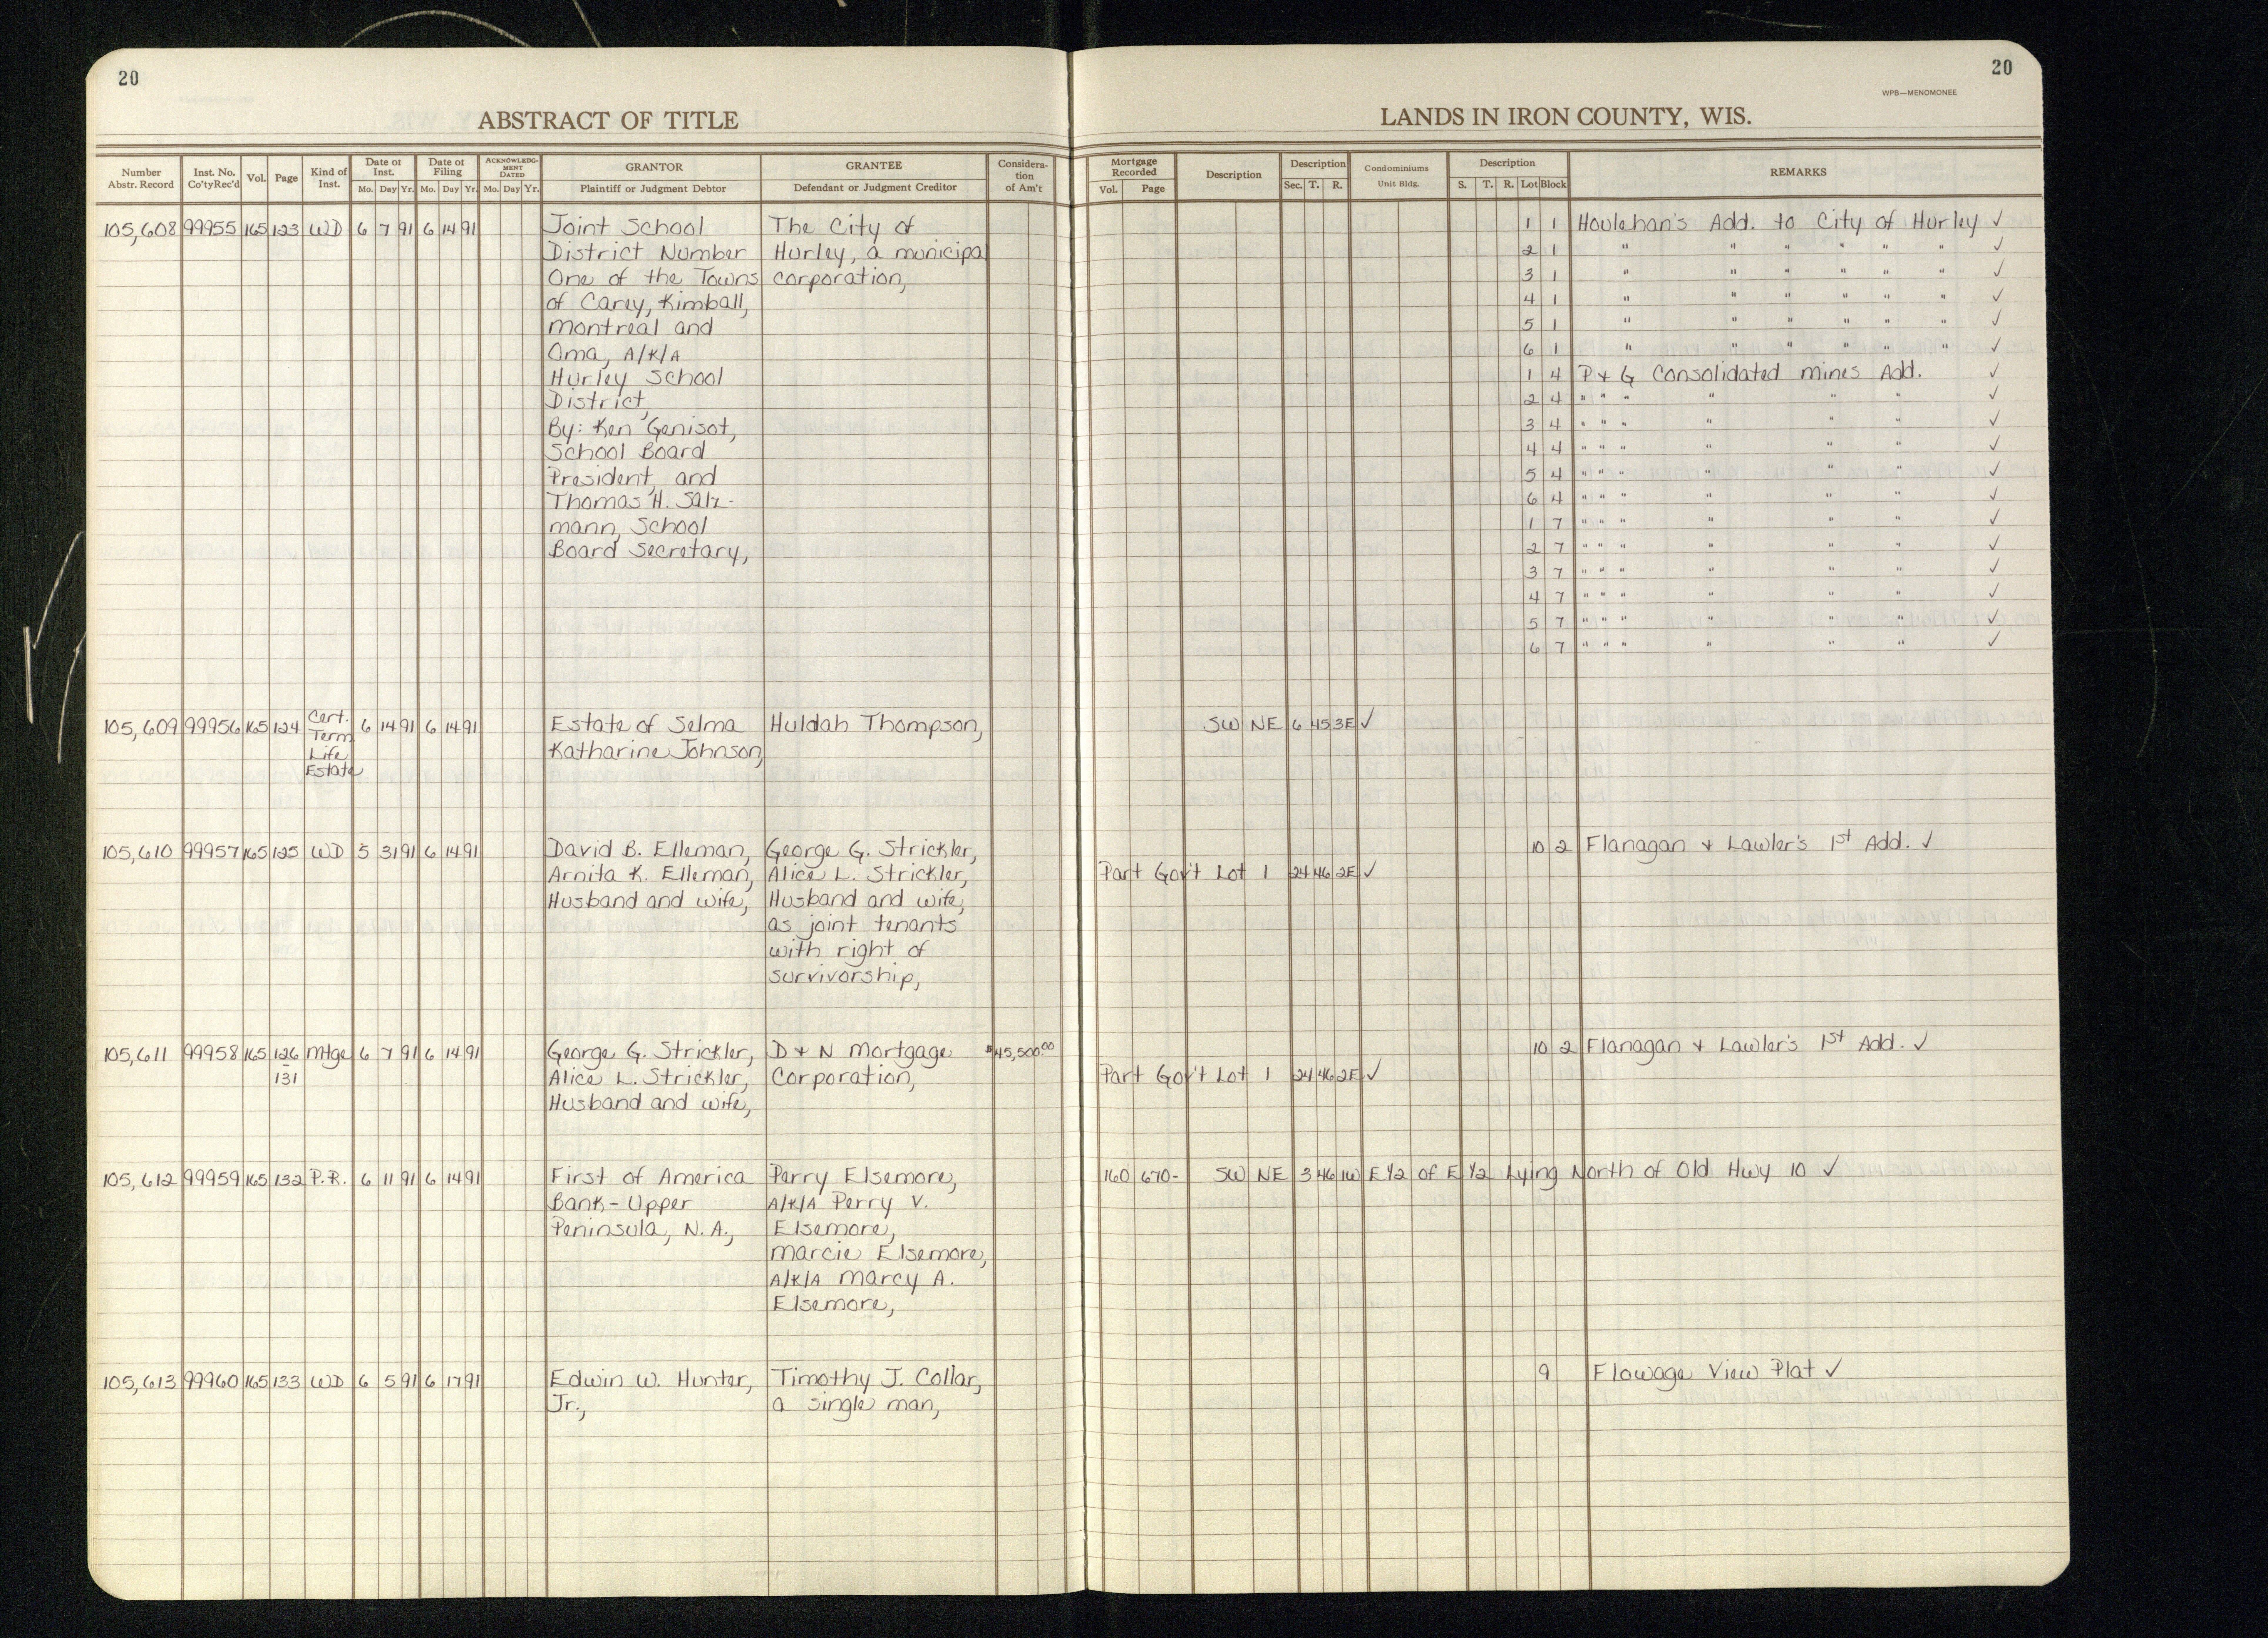 20
20
WPB—MENOMONEE
ABSTRACT OF TITLE
LANDS IN IRON COUNTY, WIS.
Number Abstr. Record | Inst. No. Co'ty Rec'd | Vol. | Page | Kind of Inst. | Date of Inst. Mo. Day Yr. | Date of Filing Mo. Day Yr. | ACKNOWLEDGMENT DATED Mo. Day Yr. | GRANTOR Plaintiff or Judgment Debtor | GRANTEE Defendant or Judgment Creditor | Consideration of Am't | Mortgage Recorded Vol. Page | Description | Description Sec. T. R. | Condominiums Unit Bldg. | Description S. T. R. Lot Block | REMARKS
105,608 99955 165 123 WD 6 7 91 6 14 91 Joint School The City of 1 1 Houlehan's Add. to City of Hurley ✓
District Number Hurley, a municipal 2 1 " " " " " " ✓
One of the Towns corporation, 3 1 " " " " " " ✓
of Carey, Kimball, 4 1 " " " " " " ✓
Montreal and 5 1 " " " " " " ✓
Oma, A/K/A 6 1 " " " " " " ✓
Hurley School 1 4 P & G Consolidated Mines Add. ✓
District, 2 4 " " " " " " ✓
By: Ken Genisot, 3 4 " " " " " " ✓
School Board 4 4 " " " " " " ✓
President, and 5 4 " " " " " " ✓
Thomas H. Salz- 6 4 " " " " " " ✓
mann, School 1 7 " " " " " " ✓
Board Secretary, 2 7 " " " " " " ✓
3 7 " " " " " " ✓
4 7 " " " " " " ✓
5 7 " " " " " " ✓
6 7 " " " " " " ✓
105,609 99956 165 124 Cert. 6 14 91 6 14 91 Estate of Selma Huldah Thompson, SW NE 6 45 3E ✓
Term Katharine Johnson,
Life
Estate
105,610 99957 165 125 WD 5 31 91 6 14 91 David B. Elleman, George G. Strickler, 10 2 Flanagan & Lawler's 1st Add. ✓
Arnita K. Elleman, Alice L. Strickler, Part Gov't Lot 1 24 46 2E ✓
Husband and wife, Husband and wife,
as joint tenants
with right of
survivorship,
105,611 99958 165 126 Mtge 6 7 91 6 14 91 George G. Strickler, D & N Mortgage $45,500.00 10 2 Flanagan & Lawler's 1st Add. ✓
- 131 Alice L. Strickler, Corporation, Part Gov't Lot 1 24 46 2E ✓
Husband and wife,
105,612 99959 165 132 P.R. 6 11 91 6 14 91 First of America Perry Elsemore, 160 670- SW NE 3 46 1W E 1/2 of E 1/2 Lying North of Old Hwy 10 ✓
Bank-Upper A/K/A Perry V.
Peninsula, N.A., Elsemore,
Marcie Elsemore,
A/K/A Marcy A.
Elsemore,
105,613 99960 165 133 WD 6 5 91 6 17 91 Edwin W. Hunter, Timothy J. Collar, 9 Flowage View Plat ✓
Jr., a single man,